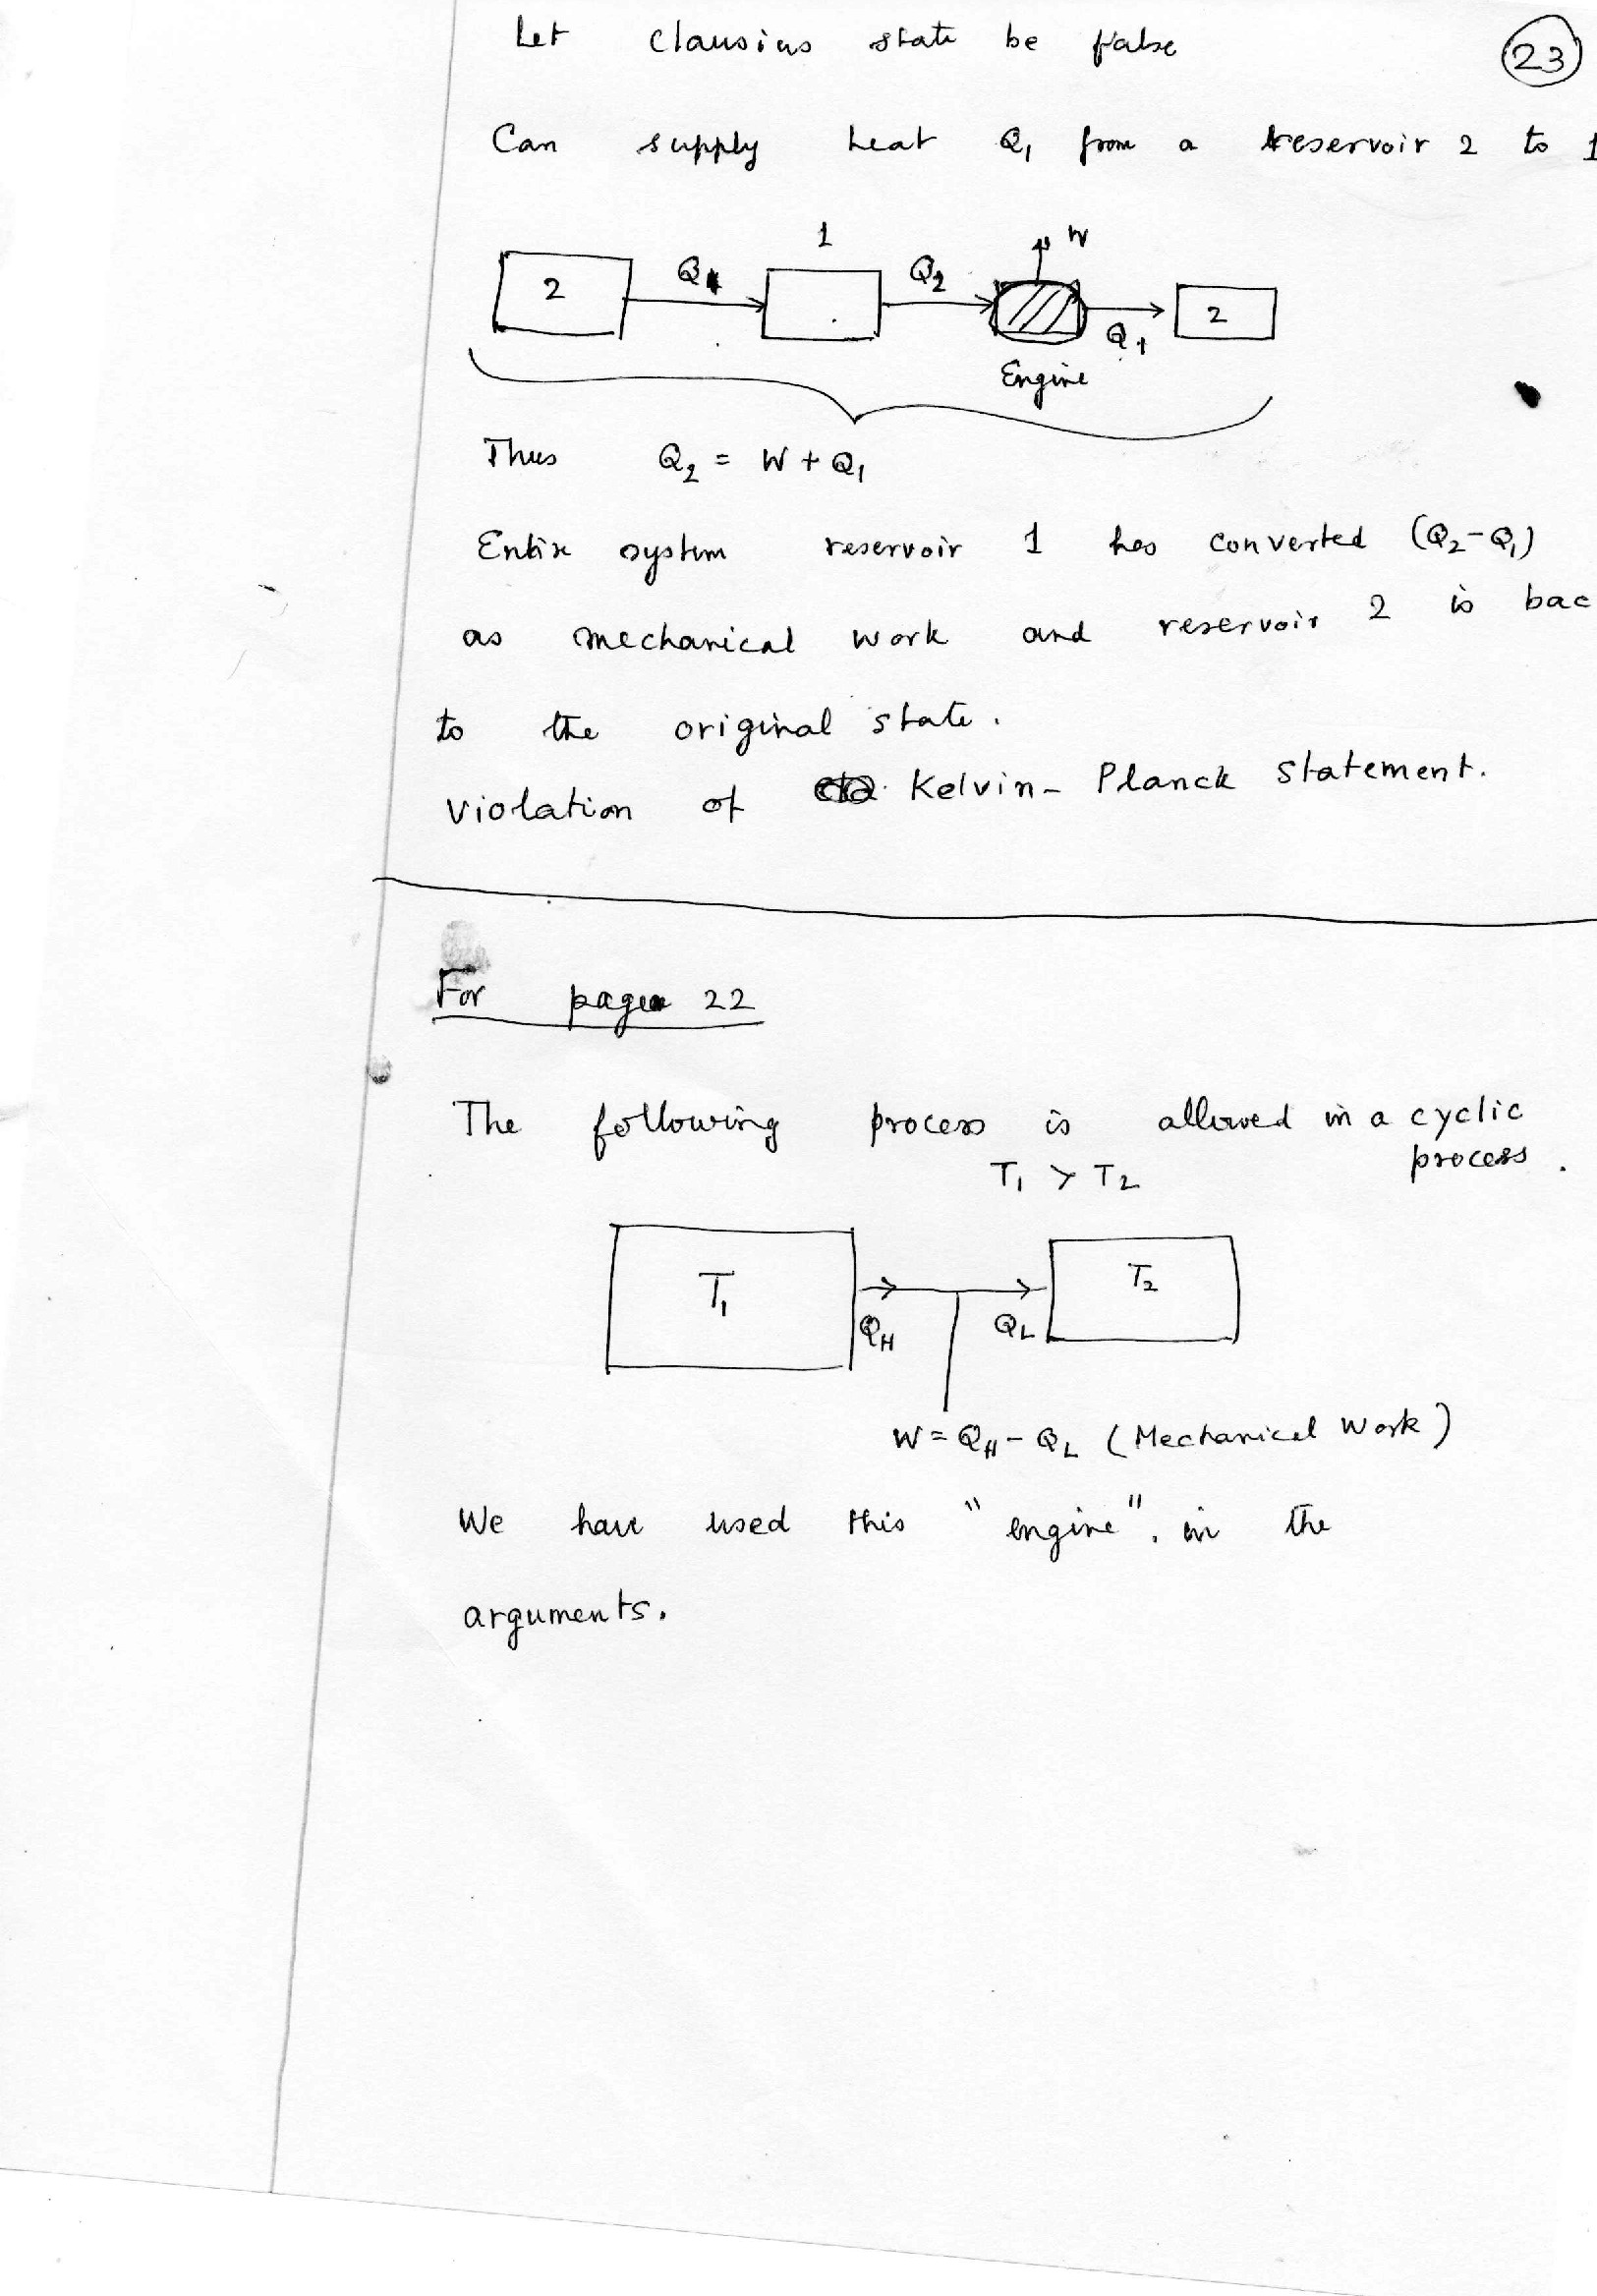 Let Clausius state be false
23
Can supply heat Q1 from a reservoir 2 to 1
1
W
2 Q1 Q2 Q1 2
Engine
Thus Q2 = W + Q1
Entire system reservoir 1 has converted (Q2-Q1)
as mechanical work and reservoir 2 is bac
to the original state.
violation of Kelvin-Planck statement.
For page 22
The following process is allowed in a cyclic
process.
T1 > T2
T1 T2
QH QL
W = QH - QL (Mechanical Work)
We have used this "engine". in the
arguments.